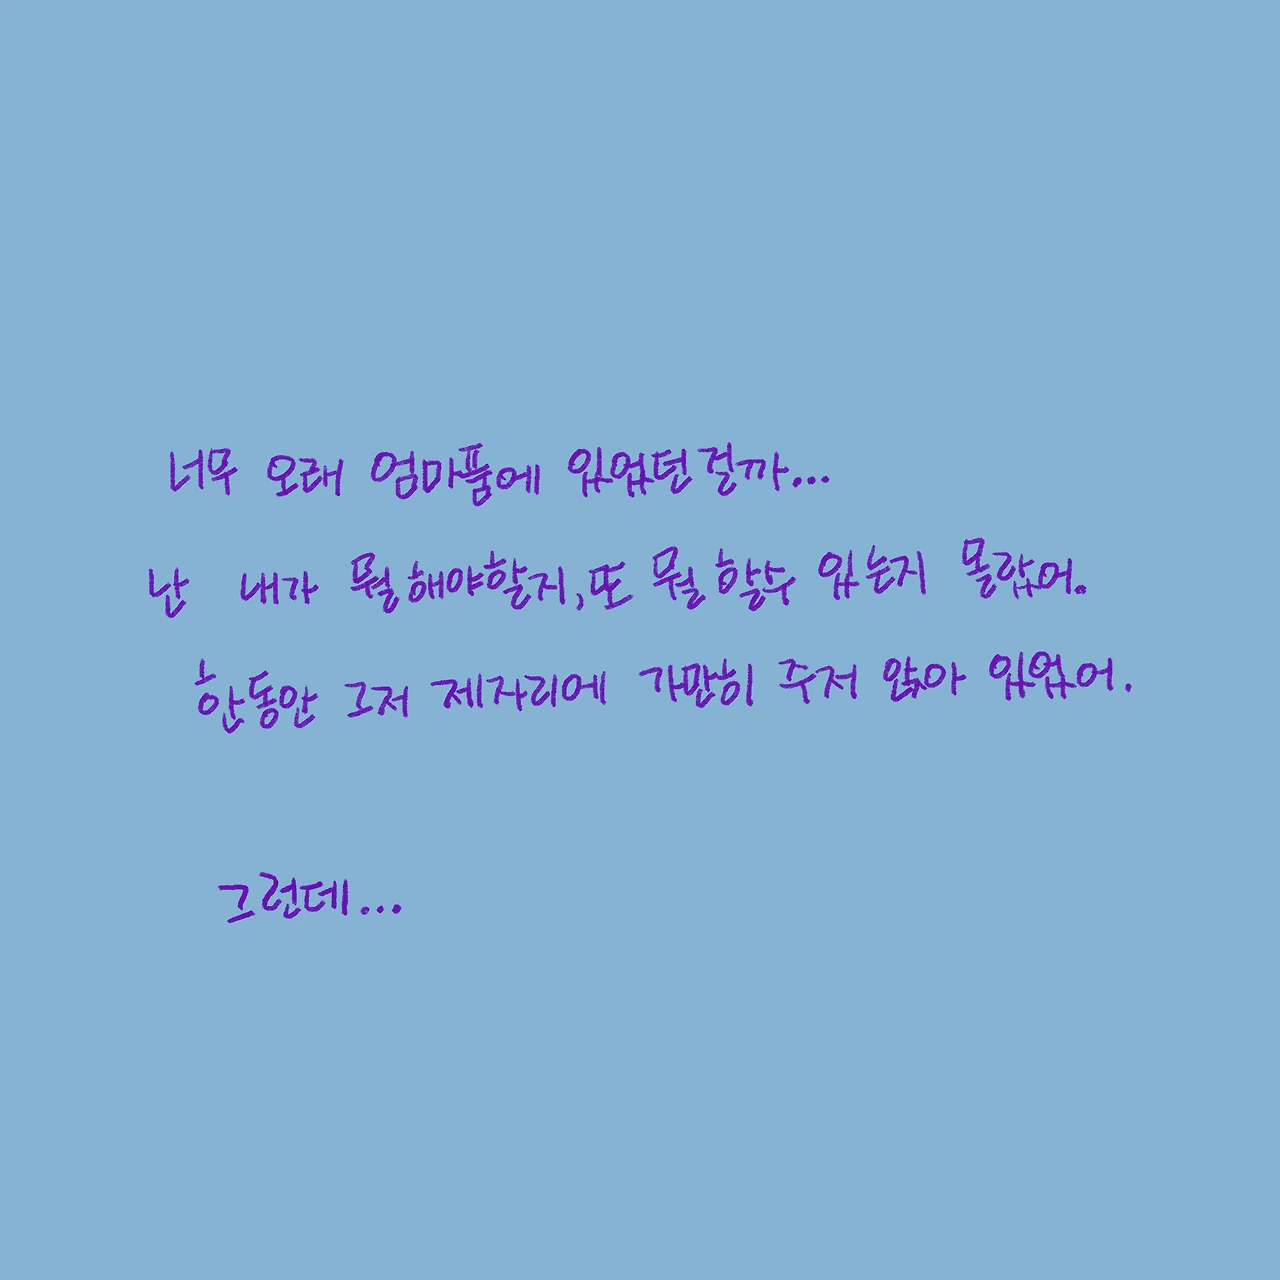 너무 오래 엄마품에 있었던걸까...
난 내가 뭘해야할지, 또 뭘 할수 있는지 몰랐어.
한동안 그저 제자리에 가만히 주저 앉아 있었어.
그런데...